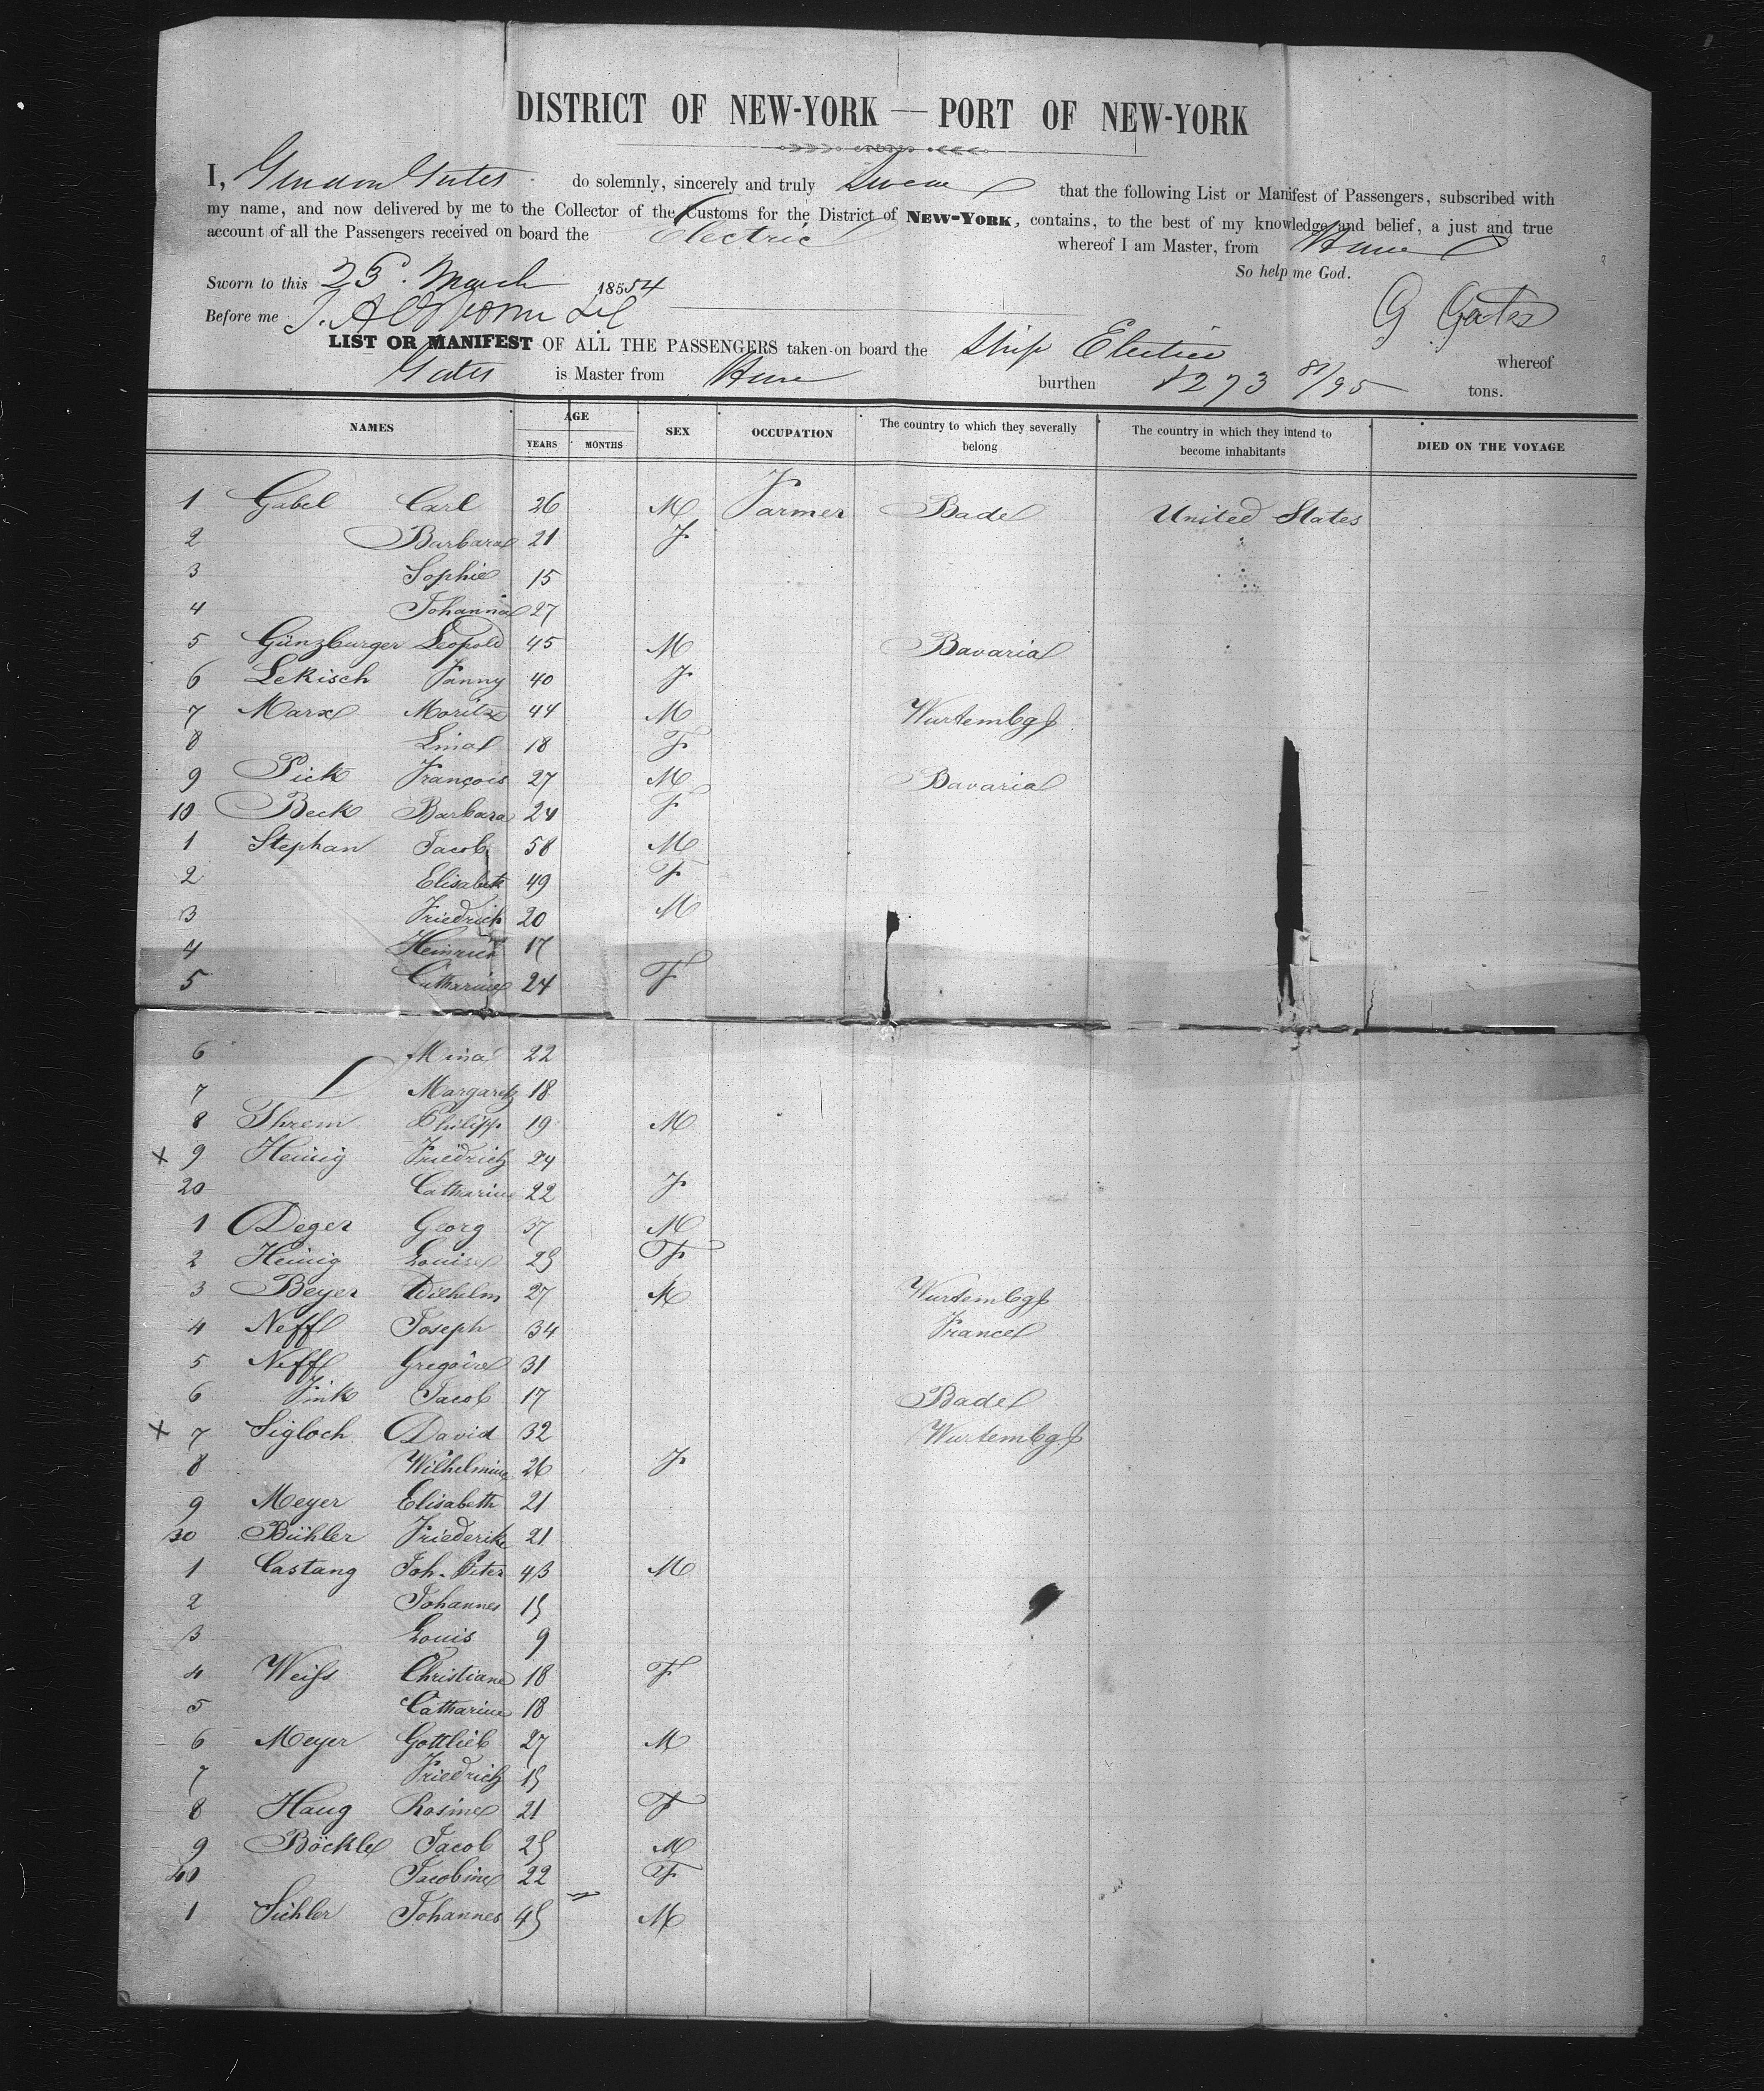 DISTRICT OF NEW-YORK — PORT OF NEW-YORK
I, Gurdon Gates do solemnly, sincerely and truly Swear that the following List or Manifest of Passengers, subscribed with
my name, and now delivered by me to the Collector of the Customs for the District of NEW-YORK, contains, to the best of my knowledge and belief, a just and true
account of all the Passengers received on board the Electric whereof I am Master, from Havre
So help me God.
Sworn to this 25. March 18554
G Gates
Before me
LIST OR MANIFEST OF ALL THE PASSENGERS taken on board the Ship Electric whereof
Gates is Master from Havre burthen 1273 81/95 tons.
NAMES AGE YEARS MONTHS SEX OCCUPATION The country to which they severally belong The country in which they intend to become inhabitants DIED ON THE VOYAGE
1 Gabel Carl 26 M Farmer Bade United States
2 Barbara 21 F "
3 Sophie 15
4 Johanna 27
5 Günzburger Leopold 45 M Bavaria
6 Lekisch Fanny 40 F
7 Marx Moritz 44 M Wurtembg
8 Lina 18 F
9 Pick François 27 M Bavaria
10 Beck Barbara 24 F
1 Stephan Jacob 58 M
2 Elisabeth 49 F
3 Friedrich 20 M
4 Heinrich 17
5 Catharine 24 F
6 Mina 22
7 Margareth 18
8 Threm Philipp 19 M
x 9 Heinig Friedrich 24
20 Catharine 22 F
1 Deger Georg 37 M
2 Heinig Louise 25 F
3 Beyer Wilhelm 27 M Wurtembg
4 Neff Joseph 34 France
5 Neff Gregoire 31
6 Fink Jacob 17 Bade
x 7 Sigloch David 32 Wurtembg
8 Wilhelmine 26 F
9 Meyer Elisabeth 21
30 Bühler Friederike 21
1 Castang Joh. Peter 43 M
2 Johannes 15
3 Louis 9
4 Weiſs Christiane 18 F
5 Catharine 18
6 Meyer Gottlieb 27 M
7 Friedrich 15
8 Haug Rosine 21 F
9 Böckle Jacob 25 M
40 Jacobine 22 F
1 Sichler Johannes 45 M